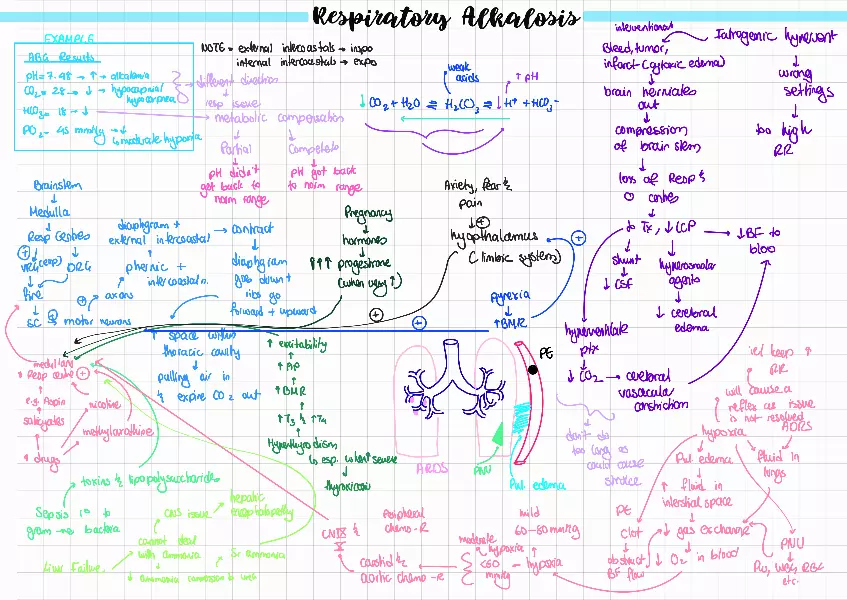 Respiratory Alkalosis
EXAMPLE
ABG Results
pH = 7.48 → ↑ → alkalemia
CO₂ = 28 → ↓ → hypocapnia/
hypocarpnea
HCO₃ = 18 → ↓
PO₂ = 45 mmHg → ↓
↳ moderate hypoxia
NOTE = external intercostals → inspo
internal intercostals → expo
different direction
↓
resp issue
metabolic compensation
Partial
Complete
pH didn't
get back to
norm range
pH got back
to norm range
weak
acids
↑ pH
↓ CO₂ + H₂O ⇌ H₂CO₃ ⇌ ↓ H⁺ + HCO₃⁻
interventional
Bleed, tumor,
infarct (cytoxic edema)
Iatrogenic hypervent
↓
wrong
settings
↓
too high
RR
brain herniates
out
↓
compression
of brain stem
↓
loss of Resp &
centres
↓
to Tx, ↓ ICP → ↓ BF to
blood
shunt
↓
↓ CSF
hyperosmolar
agents
↓
↓ cerebral
edema
hyperventilate
ptx
↓
↓ CO₂ → cerebral
vasoular
constriction
don't do
too long as
could cause
stroke
Brainstem
↓
Medulla
↓
Resp Centres
VRG (exp)
DRG
SC → motor neurons
axons
phernic +
intercostal n.
diaphgram +
external intercostal → contract
↓
diaphgram
goes down +
ribs go
forward + upward
↑ space within
thoracic cavity
↓
pulling air in
& expire CO₂ out
Pregnancy
↓
hormones
↓
↑↑↑ progestrone
(when very ↑)
Axiety, fear &
pain
↓ +
hyopthalamus
(limbic system)
pyrexia
↓
↑ BMR
+
+
+
medullary
↑ Resp centre +
e.g. Aspirin
salicyates
↑ drugs
nicotine
methylxanthine
↑ excitability
↑ AP
↑ BMR
↑ T₃ & ↑ T₄
Hyperthyrodism
↳ esp. when ↑ severe
↓
thyroxicosis
ARDS
PNU
PE
Pul. edema
toxins & lipopolysaccharides
Sepsis 2° to
gram -ve bacteria
Liver Failure
cannot deal
with ammonia
↓ Ammonia conversion to urea
CNS issue
hepatic
encephalopathy
Sr ammonia
CNIX &
X
Peripheral
chemo-R
carotid &
aortic chemo-R
moderate
hypoxia
<60
mmHg
mild
60-80 mmHg
↑
hypoxia
will keep ↑
RR
will cause a
reflex as issue
is not resolved
ADRS
hypoxia
Pul. edema
↓
↑ fluid in
interstial space
↓
↓ gas exchange
↓
↓ O₂ in blood
fluid in
lungs
PE
Clot
↓
obstruct
BF flow
PNU
↓
Pu, WBC, RBC
etc.